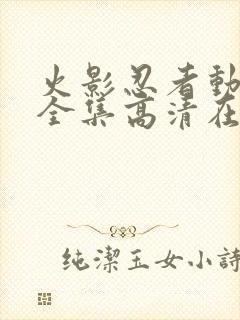 火影忍者動
全集高清在
纯潔玉女小詩